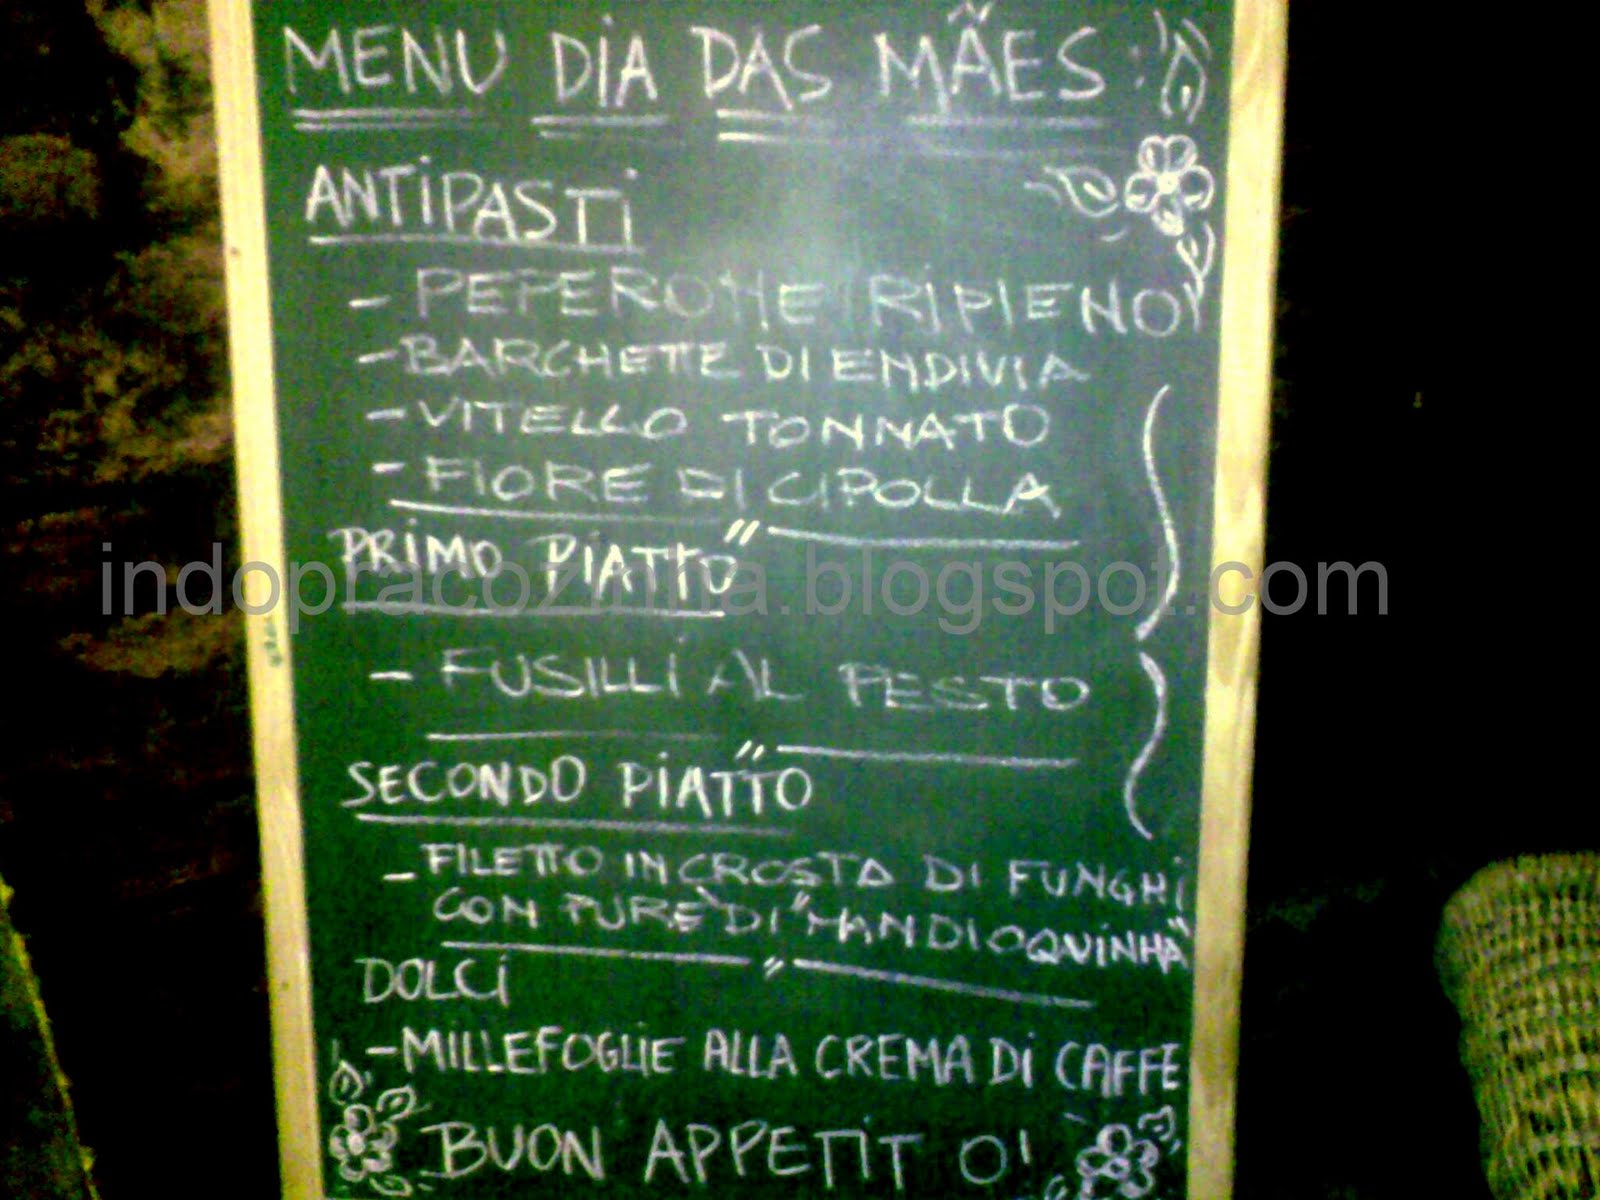 MENU DIA DAS MÃES
ANTIPASTI
- PEPERONE RIPIENO
- BARCHETTE DI ENDIVIA
- VITELLO TONNATO
- FIORE DI CIPOLLA
PRIMO PIATTO
indopracozinha.blogspot.com
- FUSILLI AL PESTO
SECONDO PIATTO
- FILETTO IN CROSTA DI FUNGHI
CON PURÈ DI "MANDIOQUINHA"
DOLCI
- MILLEFOGLIE ALLA CREMA DI CAFFE
BUON APPETITO!